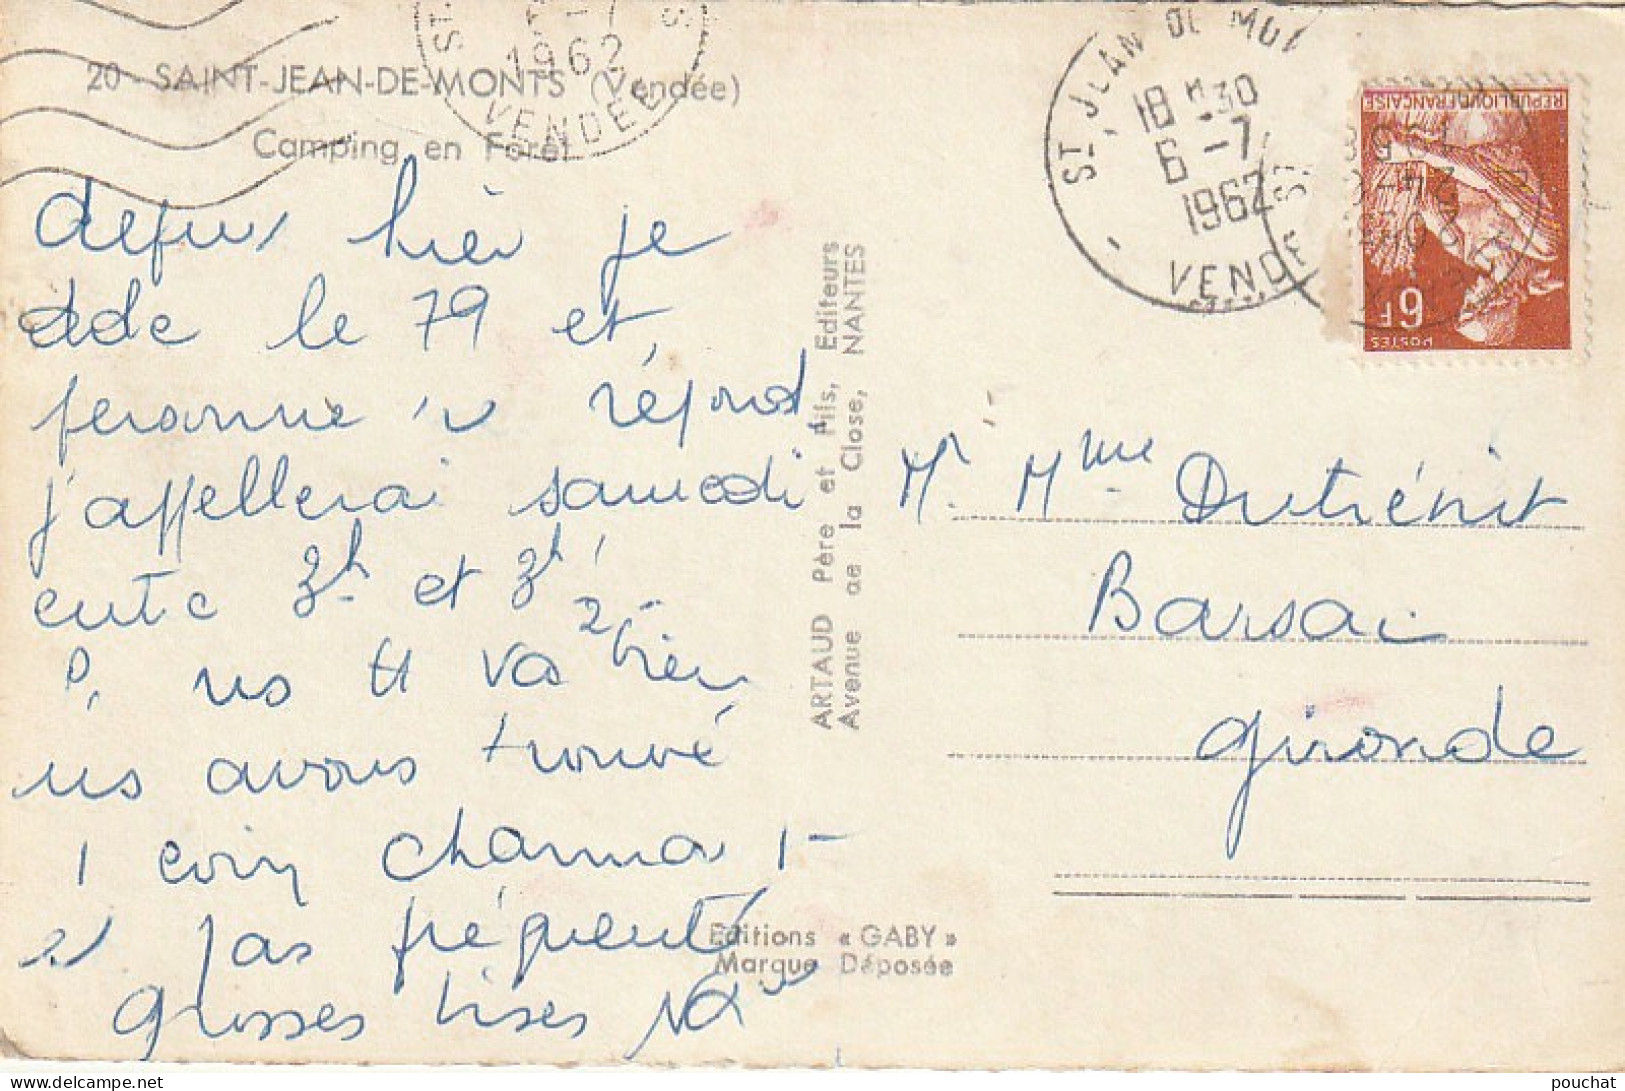 20 - SAINT-JEAN-DE-MONTS (Vendée)
Camping en Forêt
1962
VENDÉE
depuis hier je
le 79 et
personne répond
j'appellerai samedi
entre 3h et 3h 1/2
P. ns tt va bien
ns avons trouvé
1 coin charmant
et pas fréquenté
Grosses bises
ARTAUD Père et Fils, Editeurs
Avenue de la Close, NANTES
Editions « GABY »
Marque Déposée
ST JEAN DE MON
18H30
6 -7
1962
VENDE
REPUBLIQUE FRANÇAISE
6F
POSTES
Mr Mme Dutrénit
Barsac
Gironde
pouchat